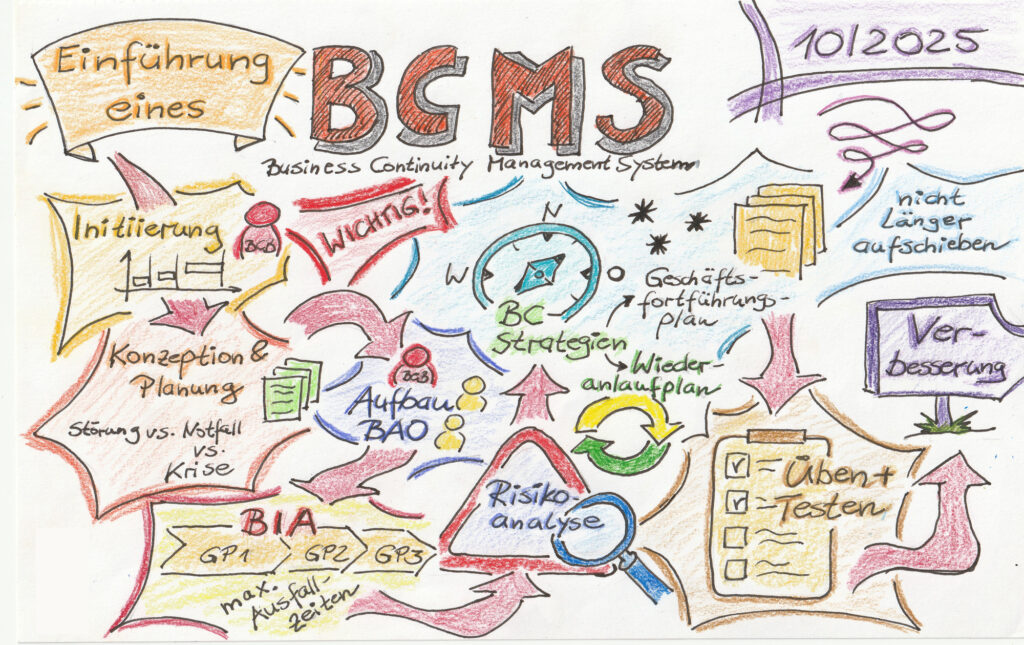 Einführung
eines
BCMS
Business Continuity Management System
10/2025
Initiierung
BCB
WICHTIG!
N
W
O
BC
Strategien
Geschäfts-
fortführungs-
plan
Wieder-
anlaufplan
nicht
Länger
aufschieben
Konzeption &
Planung
Störung vs. Notfall
vs.
Krise
BCB
Aufbau
BAO
BIA
GP1
GP2
GP3
max.
Ausfall-
zeiten
Risiko-
analyse
Üben +
Testen
Ver-
besserung